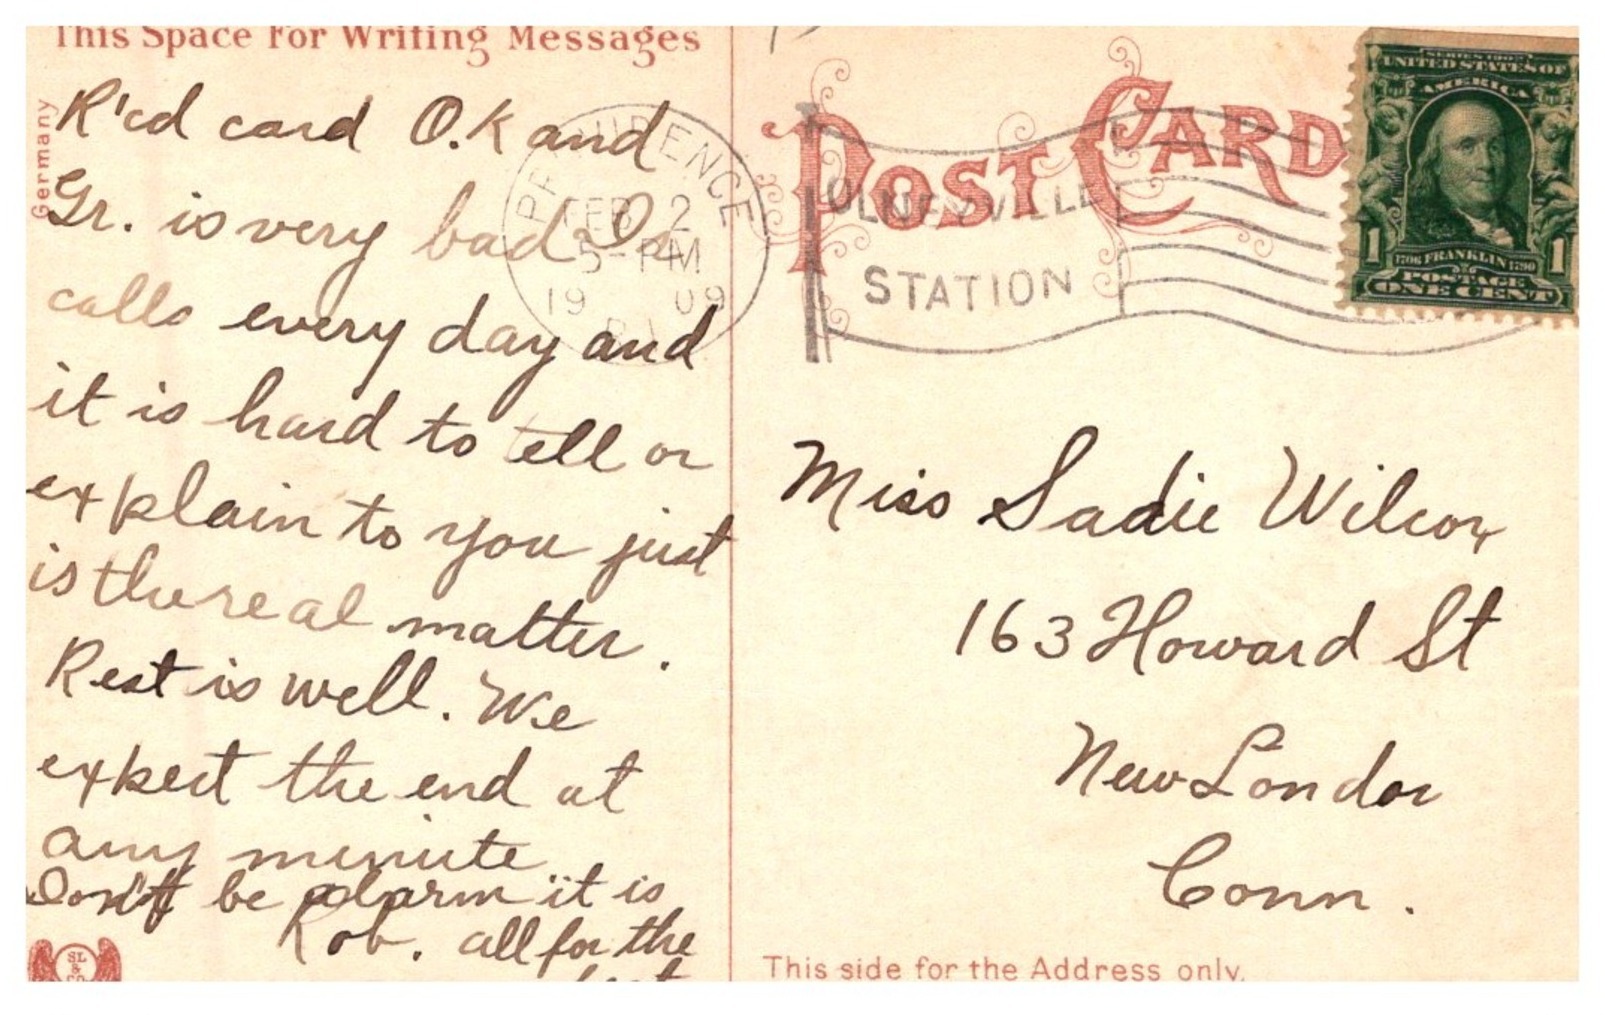 This Space For Writing Messages
Germany
R'cd card O.K and
Gr. is very bad Dr
calls every day and
it is hard to tell or
explain to you just
is the real matter.
Rest is well. We
expect the end at
any minute
Don't be alarm it is
Rob. all for the
SL
&
CO
POST CARD
PROVIDENCE
FEB 2
5-PM
1909
R.I.
OLNEYVILLE
STATION
SERIES 1902
UNITED STATES OF
AMERICA
1706 FRANKLIN 1790
1 1
POSTAGE
ONE CENT
Miss Sadie Wilcox
163 Howard St
New London
Conn.
This side for the Address only.